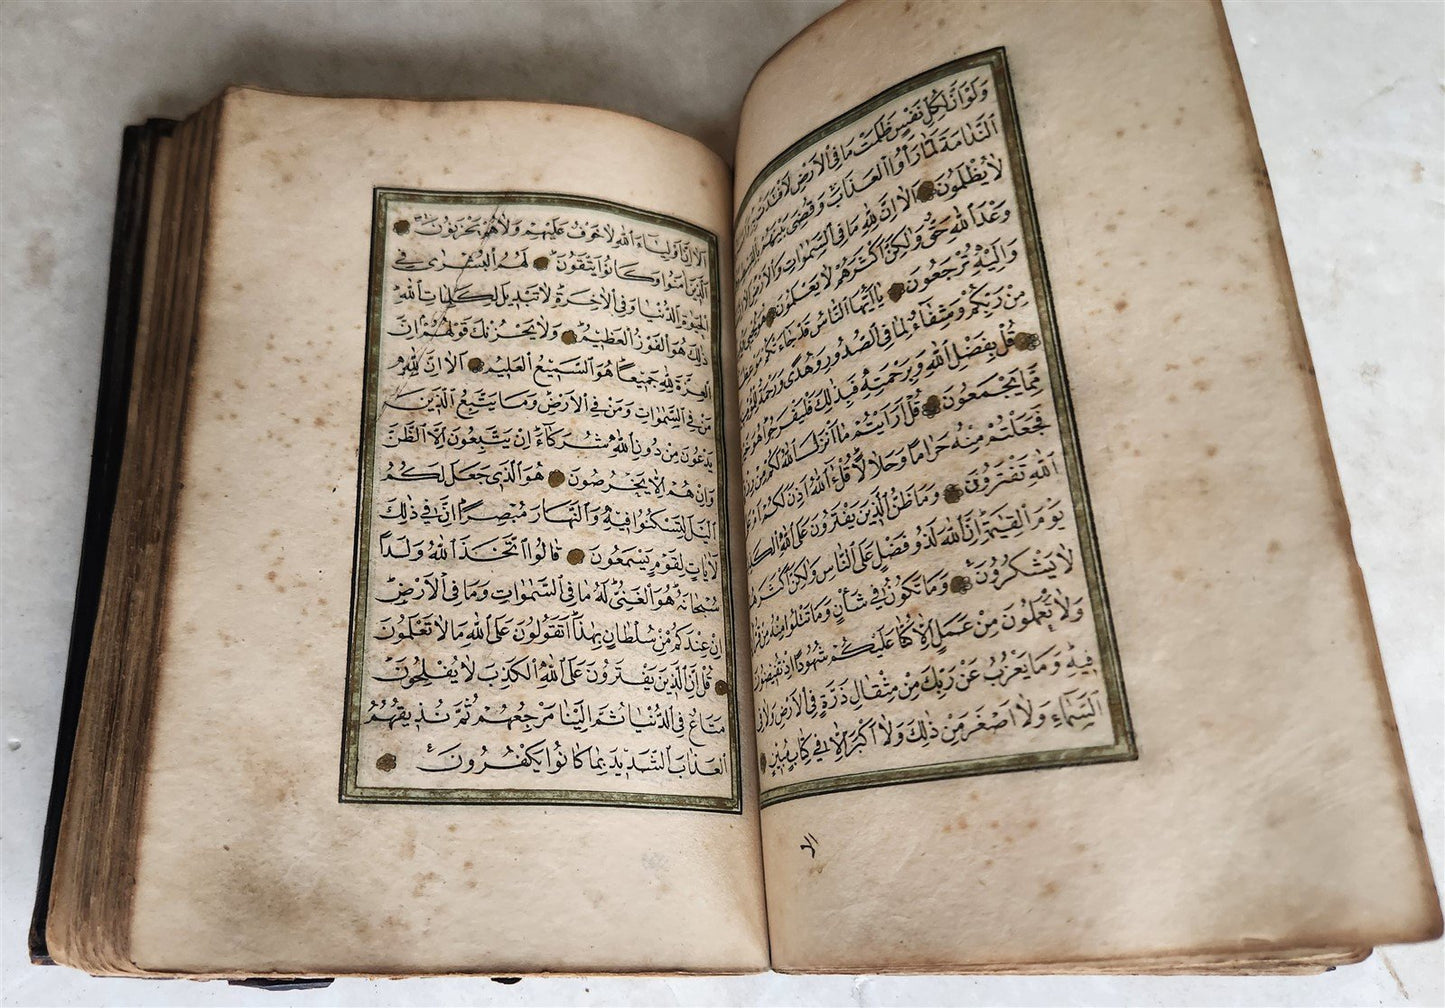 وَلَوْ اَنَّ لِكُلِّ نَفْسٍ ظَلَمَتْ مَا فِي الْاَرْضِ لَافْتَدَتْ
النَّدَامَةَ لَمَّا رَاَوُا الْعَذَابَ وَقُضِيَ بَيْنَهُمْ
لَا يُظْلَمُونَ اَلَا اِنَّ لِلهِ مَا فِي السَّمٰوَاتِ وَالْاَرْضِ
وَعْدَ اللهِ حَقٌّ وَلٰكِنَّ اَكْثَرَهُمْ لَا يَعْلَمُونَ هُوَ
وَاِلَيْهِ تُرْجَعُونَ يَا اَيُّهَا النَّاسُ قَدْ جَاءَتْكُمْ
مِنْ رَبِّكُمْ وَشِفَاءٌ لِمَا فِي الصُّدُورِ وَهُدًى وَرَحْمَةٌ
قُلْ بِفَضْلِ اللهِ وَبِرَحْمَتِهِ فَبِذٰلِكَ فَلْيَفْرَحُوا هُوَ
مِمَّا يَجْمَعُونَ قُلْ اَرَاَيْتُمْ مَا اَنْزَلَ اللهُ لَكُمْ مِنْ
فَجَعَلْتُمْ مِنْهُ حَرَامًا وَحَلَالًا قُلْ آللهُ اَذِنَ لَكُمْ
اللهِ تَفْتَرُونَ وَمَا ظَنُّ الَّذِينَ يَفْتَرُونَ عَلَى اللهِ
يَوْمَ الْقِيٰمَةِ اِنَّ اللهَ لَذُو فَضْلٍ عَلَى النَّاسِ وَلٰكِنَّ
لَا يَشْكُرُونَ وَمَا تَكُونُ فِي شَأْنٍ وَمَا تَتْلُوا مِنْهُ مِنْ
وَلَا تَعْمَلُونَ مِنْ عَمَلٍ اِلَّا كُنَّا عَلَيْكُمْ شُهُودًا اِذْ تُفِيضُونَ
فِيهِ وَمَا يَعْزُبُ عَنْ رَبِّكَ مِنْ مِثْقَالِ ذَرَّةٍ فِي الْاَرْضِ وَلَا فِي
السَّمَاءِ وَلَا اَصْغَرَ مِنْ ذٰلِكَ وَلَا اَكْبَرَ اِلَّا فِي كِتَابٍ مُبِينٍ
اَلَا اِنَّ اَوْلِيَاءَ اللهِ لَا خَوْفٌ عَلَيْهِمْ وَلَا هُمْ يَحْزَنُونَ
الَّذِينَ اٰمَنُوا وَكَانُوا يَتَّقُونَ لَهُمُ الْبُشْرٰى فِي
الْحَيٰوةِ الدُّنْيَا وَفِي الْاٰخِرَةِ لَا تَبْدِيلَ لِكَلِمَاتِ اللهِ
ذٰلِكَ هُوَ الْفَوْزُ الْعَظِيمُ وَلَا يَحْزُنْكَ قَوْلُهُمْ اِنَّ
الْعِزَّةَ لِلهِ جَمِيعًا هُوَ السَّمِيعُ الْعَلِيمُ اَلَا اِنَّ لِلهِ
مَنْ فِي السَّمٰوَاتِ وَمَنْ فِي الْاَرْضِ وَمَا يَتَّبِعُ الَّذِينَ
يَدْعُونَ مِنْ دُونِ اللهِ شُرَكَاءَ اِنْ يَتَّبِعُونَ اِلَّا الظَّنَّ
وَاِنْ هُمْ اِلَّا يَخْرُصُونَ هُوَ الَّذِي جَعَلَ لَكُمُ
الَّيْلَ لِتَسْكُنُوا فِيهِ وَالنَّهَارَ مُبْصِرًا اِنَّ فِي ذٰلِكَ
لَاٰيَاتٍ لِقَوْمٍ يَسْمَعُونَ قَالُوا اتَّخَذَ اللهُ وَلَدًا
سُبْحَانَهُ هُوَ الْغَنِيُّ لَهُ مَا فِي السَّمٰوَاتِ وَمَا فِي الْاَرْضِ
اِنْ عِنْدَكُمْ مِنْ سُلْطَانٍ بِهٰذَا اَتَقُولُونَ عَلَى اللهِ مَا لَا تَعْلَمُونَ
قُلْ اِنَّ الَّذِينَ يَفْتَرُونَ عَلَى اللهِ الْكَذِبَ لَا يُفْلِحُونَ
مَتَاعٌ فِي الدُّنْيَا ثُمَّ اِلَيْنَا مَرْجِعُهُمْ ثُمَّ نُذِيقُهُمُ
الْعَذَابَ الشَّدِيدَ بِمَا كَانُوا يَكْفُرُونَ
الا